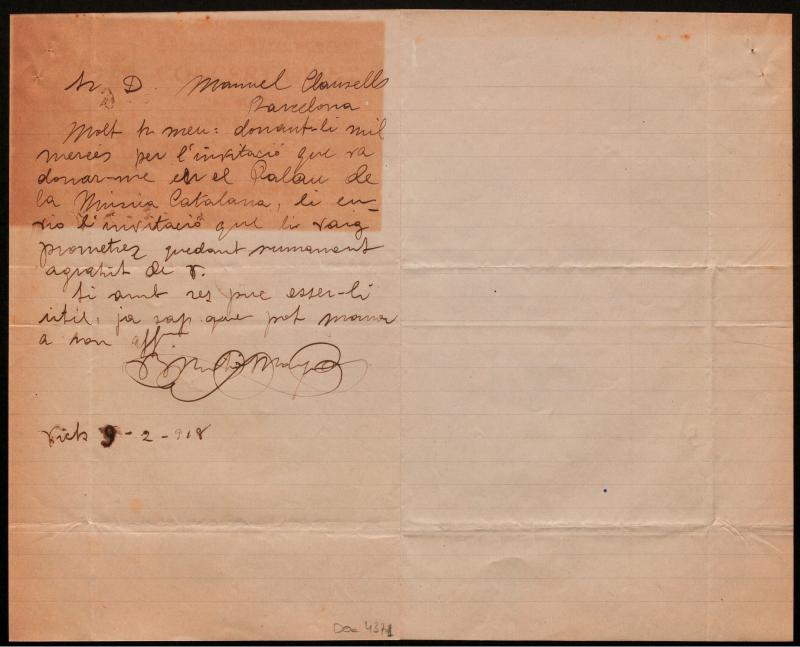 Sr. D. Manuel Clausells
Barcelona
Molt Sr meu: donant-li mil
mercés per l'invitació que va
donar-me en el Palau de
la Música Catalana, li en-
vio l'invitació que li vaig
prometrer quedant sumament
agrahit de V.
Si amb res puc esser-li
útil, ja sap que pot manar
a son affm.
Vich 9-2-918
Do= 4371